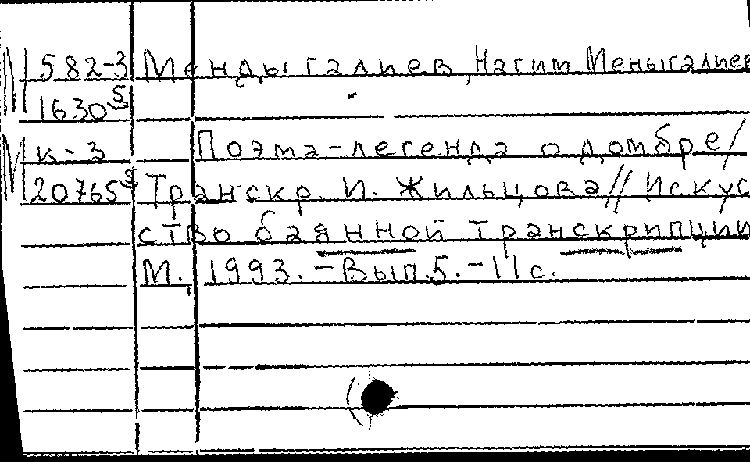 1582-3 Мендыгалиев, Нагим Меныгалиев
1630 5
к-3 Поэма-легенда о домбре/
20765 3 Транскр. И. Жильцова // Искус
ство баянной транскрипции
М., 1993. - Вып. 5. - 11 с.